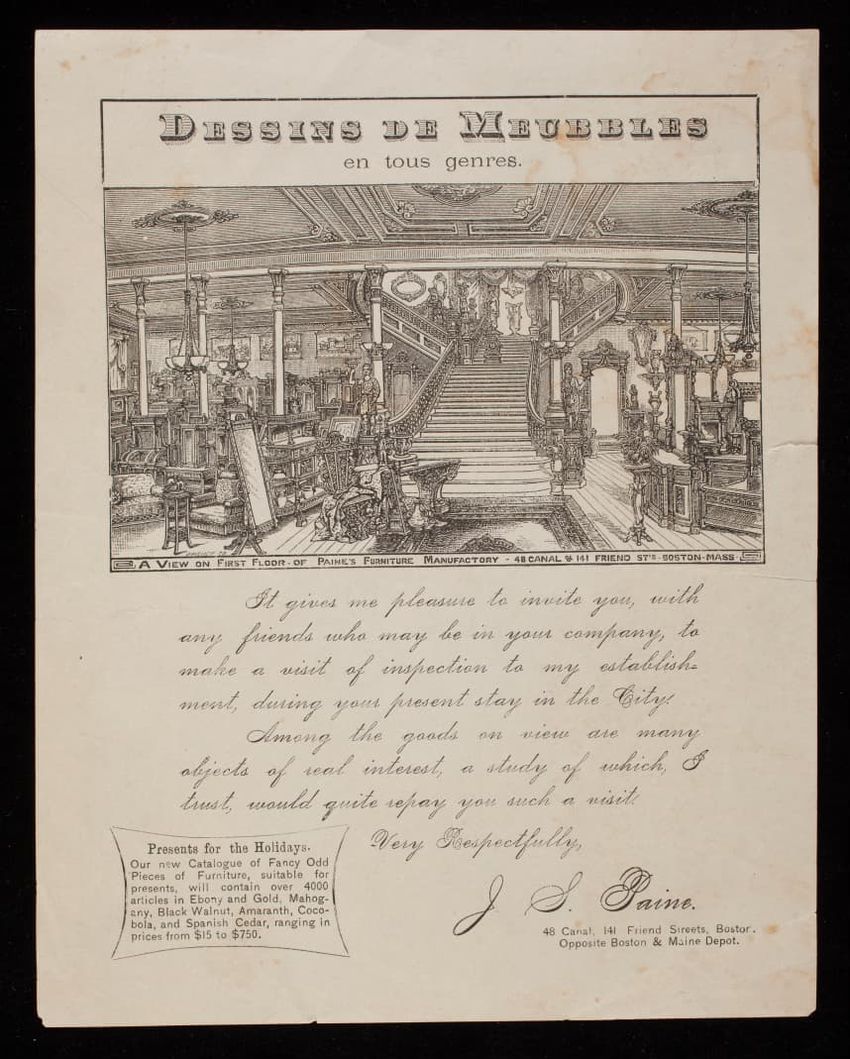 DESSINS DE MEUBBLES
en tous genres.
A VIEW ON FIRST FLOOR OF PAINE'S FURNITURE MANUFACTORY - 48 CANAL & 141 FRIEND ST'S - BOSTON - MASS
It gives me pleasure to invite you, with
any friends who may be in your company, to
make a visit of inspection to my establish=
ment, during your present stay in the City.
Among the goods on view are many
objects of real interest, a study of which, I
trust, would quite repay you such a visit.
Very Respectfully,
J. S. Paine.
48 Canal, 141 Friend Streets, Boston.
Opposite Boston & Maine Depot.
Presents for the Holidays.
Our new Catalogue of Fancy Odd
Pieces of Furniture, suitable for
presents, will contain over 4000
articles in Ebony and Gold, Mahog-
any, Black Walnut, Amaranth, Coco-
bola, and Spanish Cedar, ranging in
prices from $15 to $750.